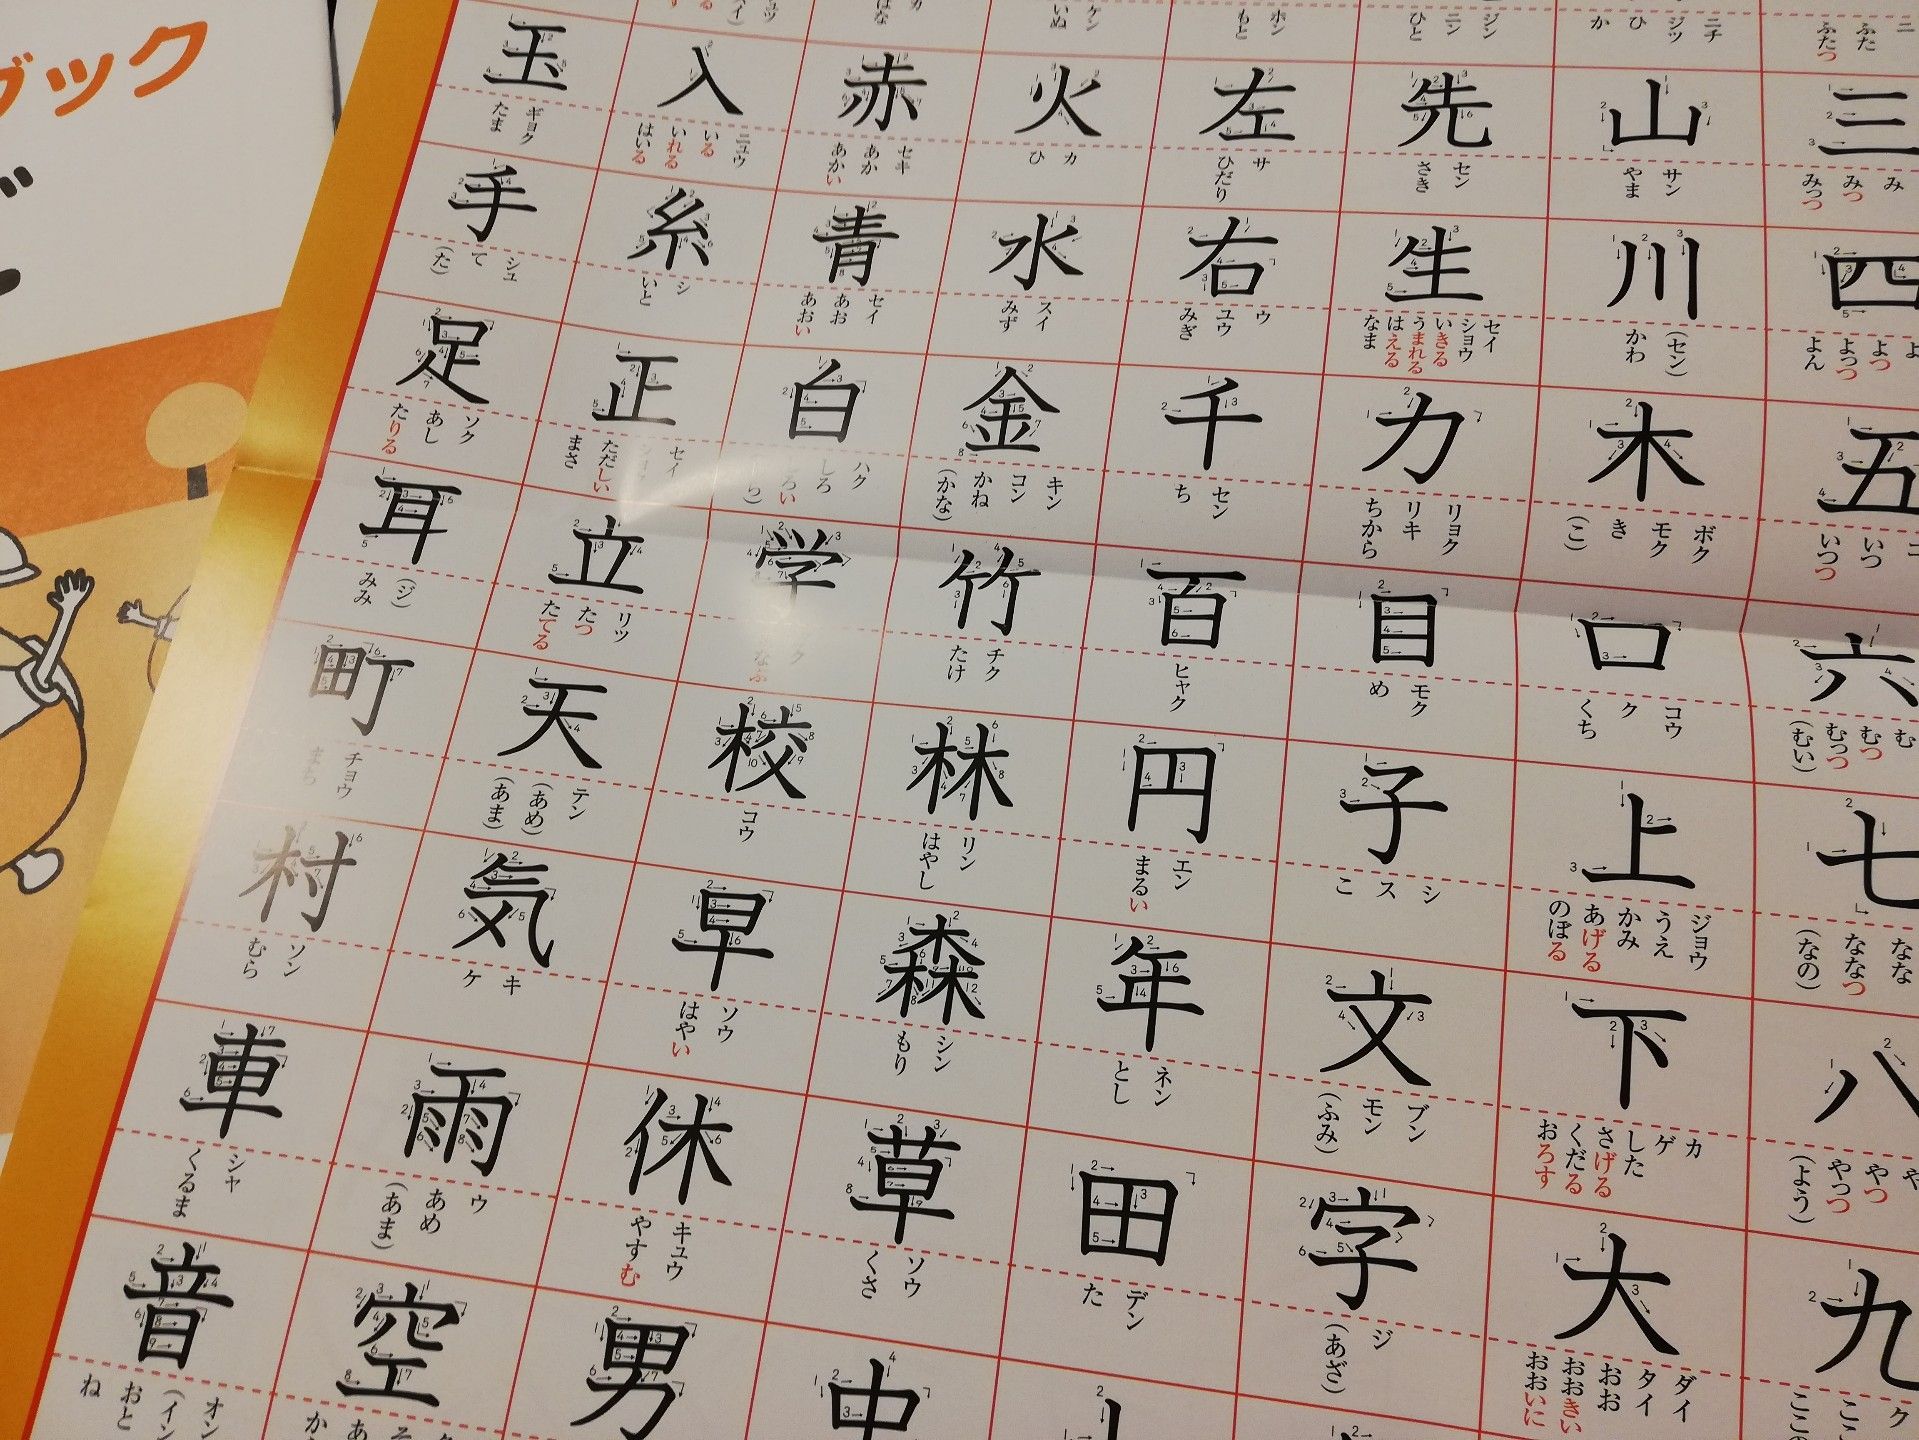 ニ
ふた
ふたつ
三
み
みつ
みっつ
四
よつ
よっつ
よん
五
いつ
いつつ
六
む
むつ
むっつ
(むい)
七
なな
ななつ
(なの)
八
や
やつ
やっつ
(よう)
九
ク
ニチ
ジツ
ひ
か
山
サン
やま
川
(セン)
かわ
木
ボク
モク
き
(こ)
口
コウ
ク
くち
上
ジョウ
うえ
かみ
あげる
のぼる
下
カ
ゲ
した
さげる
くだる
おろす
大
ダイ
タイ
おお
おおきい
おおいに
ジン
ニン
ひと
先
セン
さき
生
セイ
ショウ
いきる
うまれる
はえる
なま
力
リョク
リキ
ちから
目
モク
め
子
シ
ス
こ
文
ブン
モン
(ふみ)
字
ジ
(あざ)
ホン
もと
左
サ
ひだり
右
ウ
ユウ
みぎ
千
セン
ち
百
ヒャク
円
エン
まるい
年
ネン
とし
田
デン
た
ケン
いぬ
火
カ
ひ
水
スイ
みず
金
キン
コン
かね
(かな)
竹
チク
たけ
林
リン
はやし
森
シン
もり
草
ソウ
くさ
中
カ
はな
赤
セキ
あか
あかい
青
セイ
あお
あおい
白
ハク
しろ
しろい
学
校
コウ
早
ソウ
はやい
休
キュウ
やすむ
男
入
ニュウ
いる
いれる
はいる
糸
シ
いと
正
セイ
ただしい
まさ
立
リツ
たつ
たてる
天
テン
(あめ)
(あま)
気
キ
ケ
雨
ウ
あめ
(あま)
空
玉
ギョク
たま
手
シュ
て
(た)
足
ソク
あし
たりる
耳
(ジ)
みみ
町
チョウ
まち
村
ソン
むら
車
シャ
くるま
音
オン
(イン
おと
ね
ブック